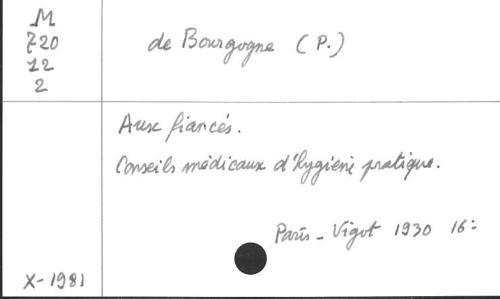 M
720
12
2
de Bourgogne (P.)
Aux fiancés.
Conseils médicaux d'hygiène pratique.
Paris - Vigot 1930 16=
X-1981